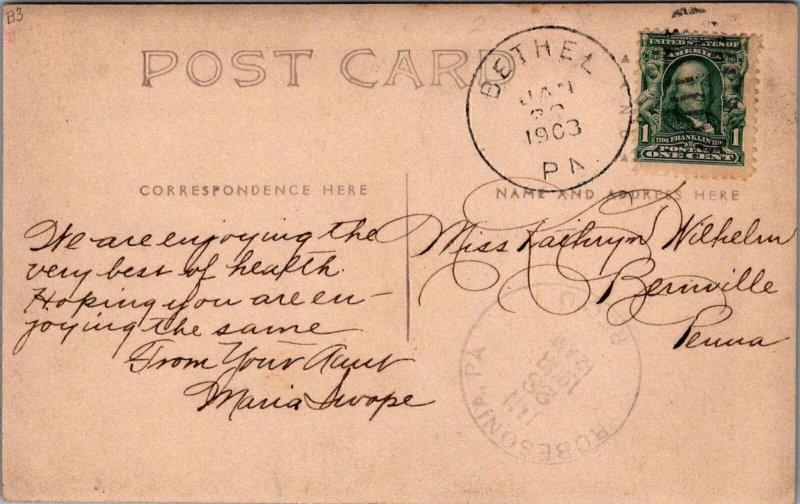 B3
POST CARD
BETHEL
JAN
1903
PA.
SERIES OF 1902
UNITED STATES OF
AMERICA
1706 FRANKLIN 1790
1 POSTAGE 1
ONE CENT
CORRESPONDENCE HERE
NAME AND ADDRESS HERE
We are enjoying the
very best of health.
Hoping you are en-
joying the same
From Your Aunt
Maria Swope
Miss Kathryn Wilhelm
Bernville
Penna
ROBESONIA, PA
JAN